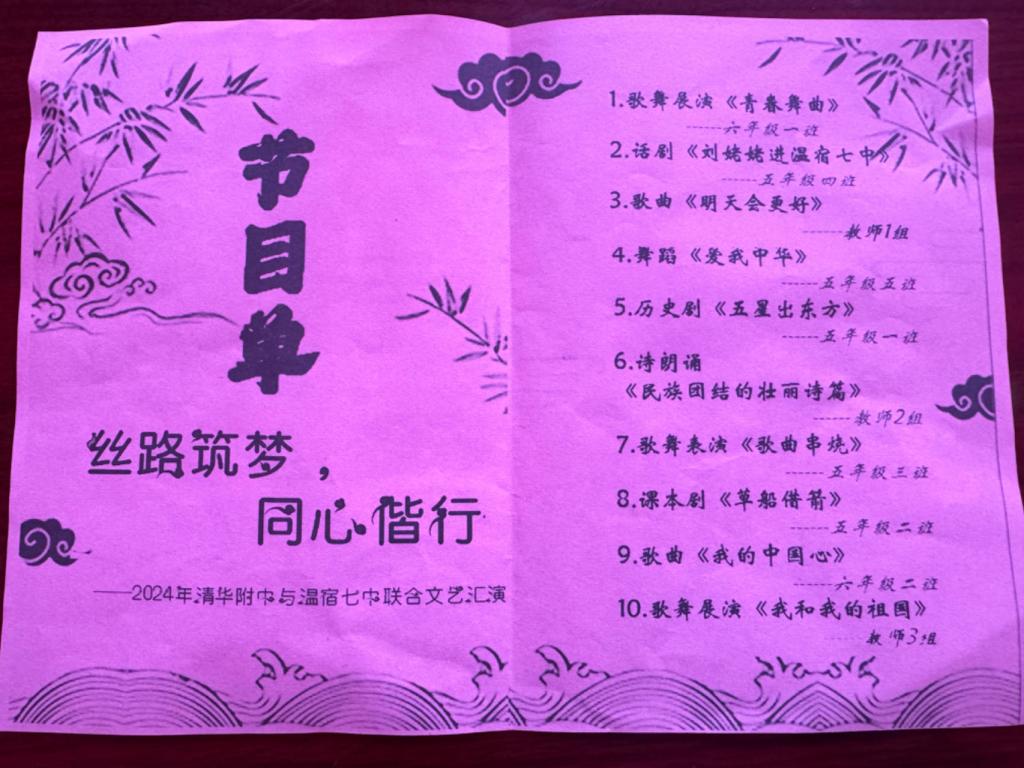 节目单
丝路筑梦，
同心偕行
——2024年清华附中与温宿七中联合文艺汇演
1.歌舞展演《青春舞曲》
------六年级一班
2.话剧《刘姥姥进温宿七中》
------五年级四班
3.歌曲《明天会更好》
------教师1组
4.舞蹈《爱我中华》
------五年级五班
5.历史剧《五星出东方》
------五年级一班
6.诗朗诵
《民族团结的壮丽诗篇》
------教师2组
7.歌舞表演《歌曲串烧》
------五年级三班
8.课本剧《草船借箭》
------五年级二班
9.歌曲《我的中国心》
------六年级二班
10.歌舞展演《我和我的祖国》
------教师3组